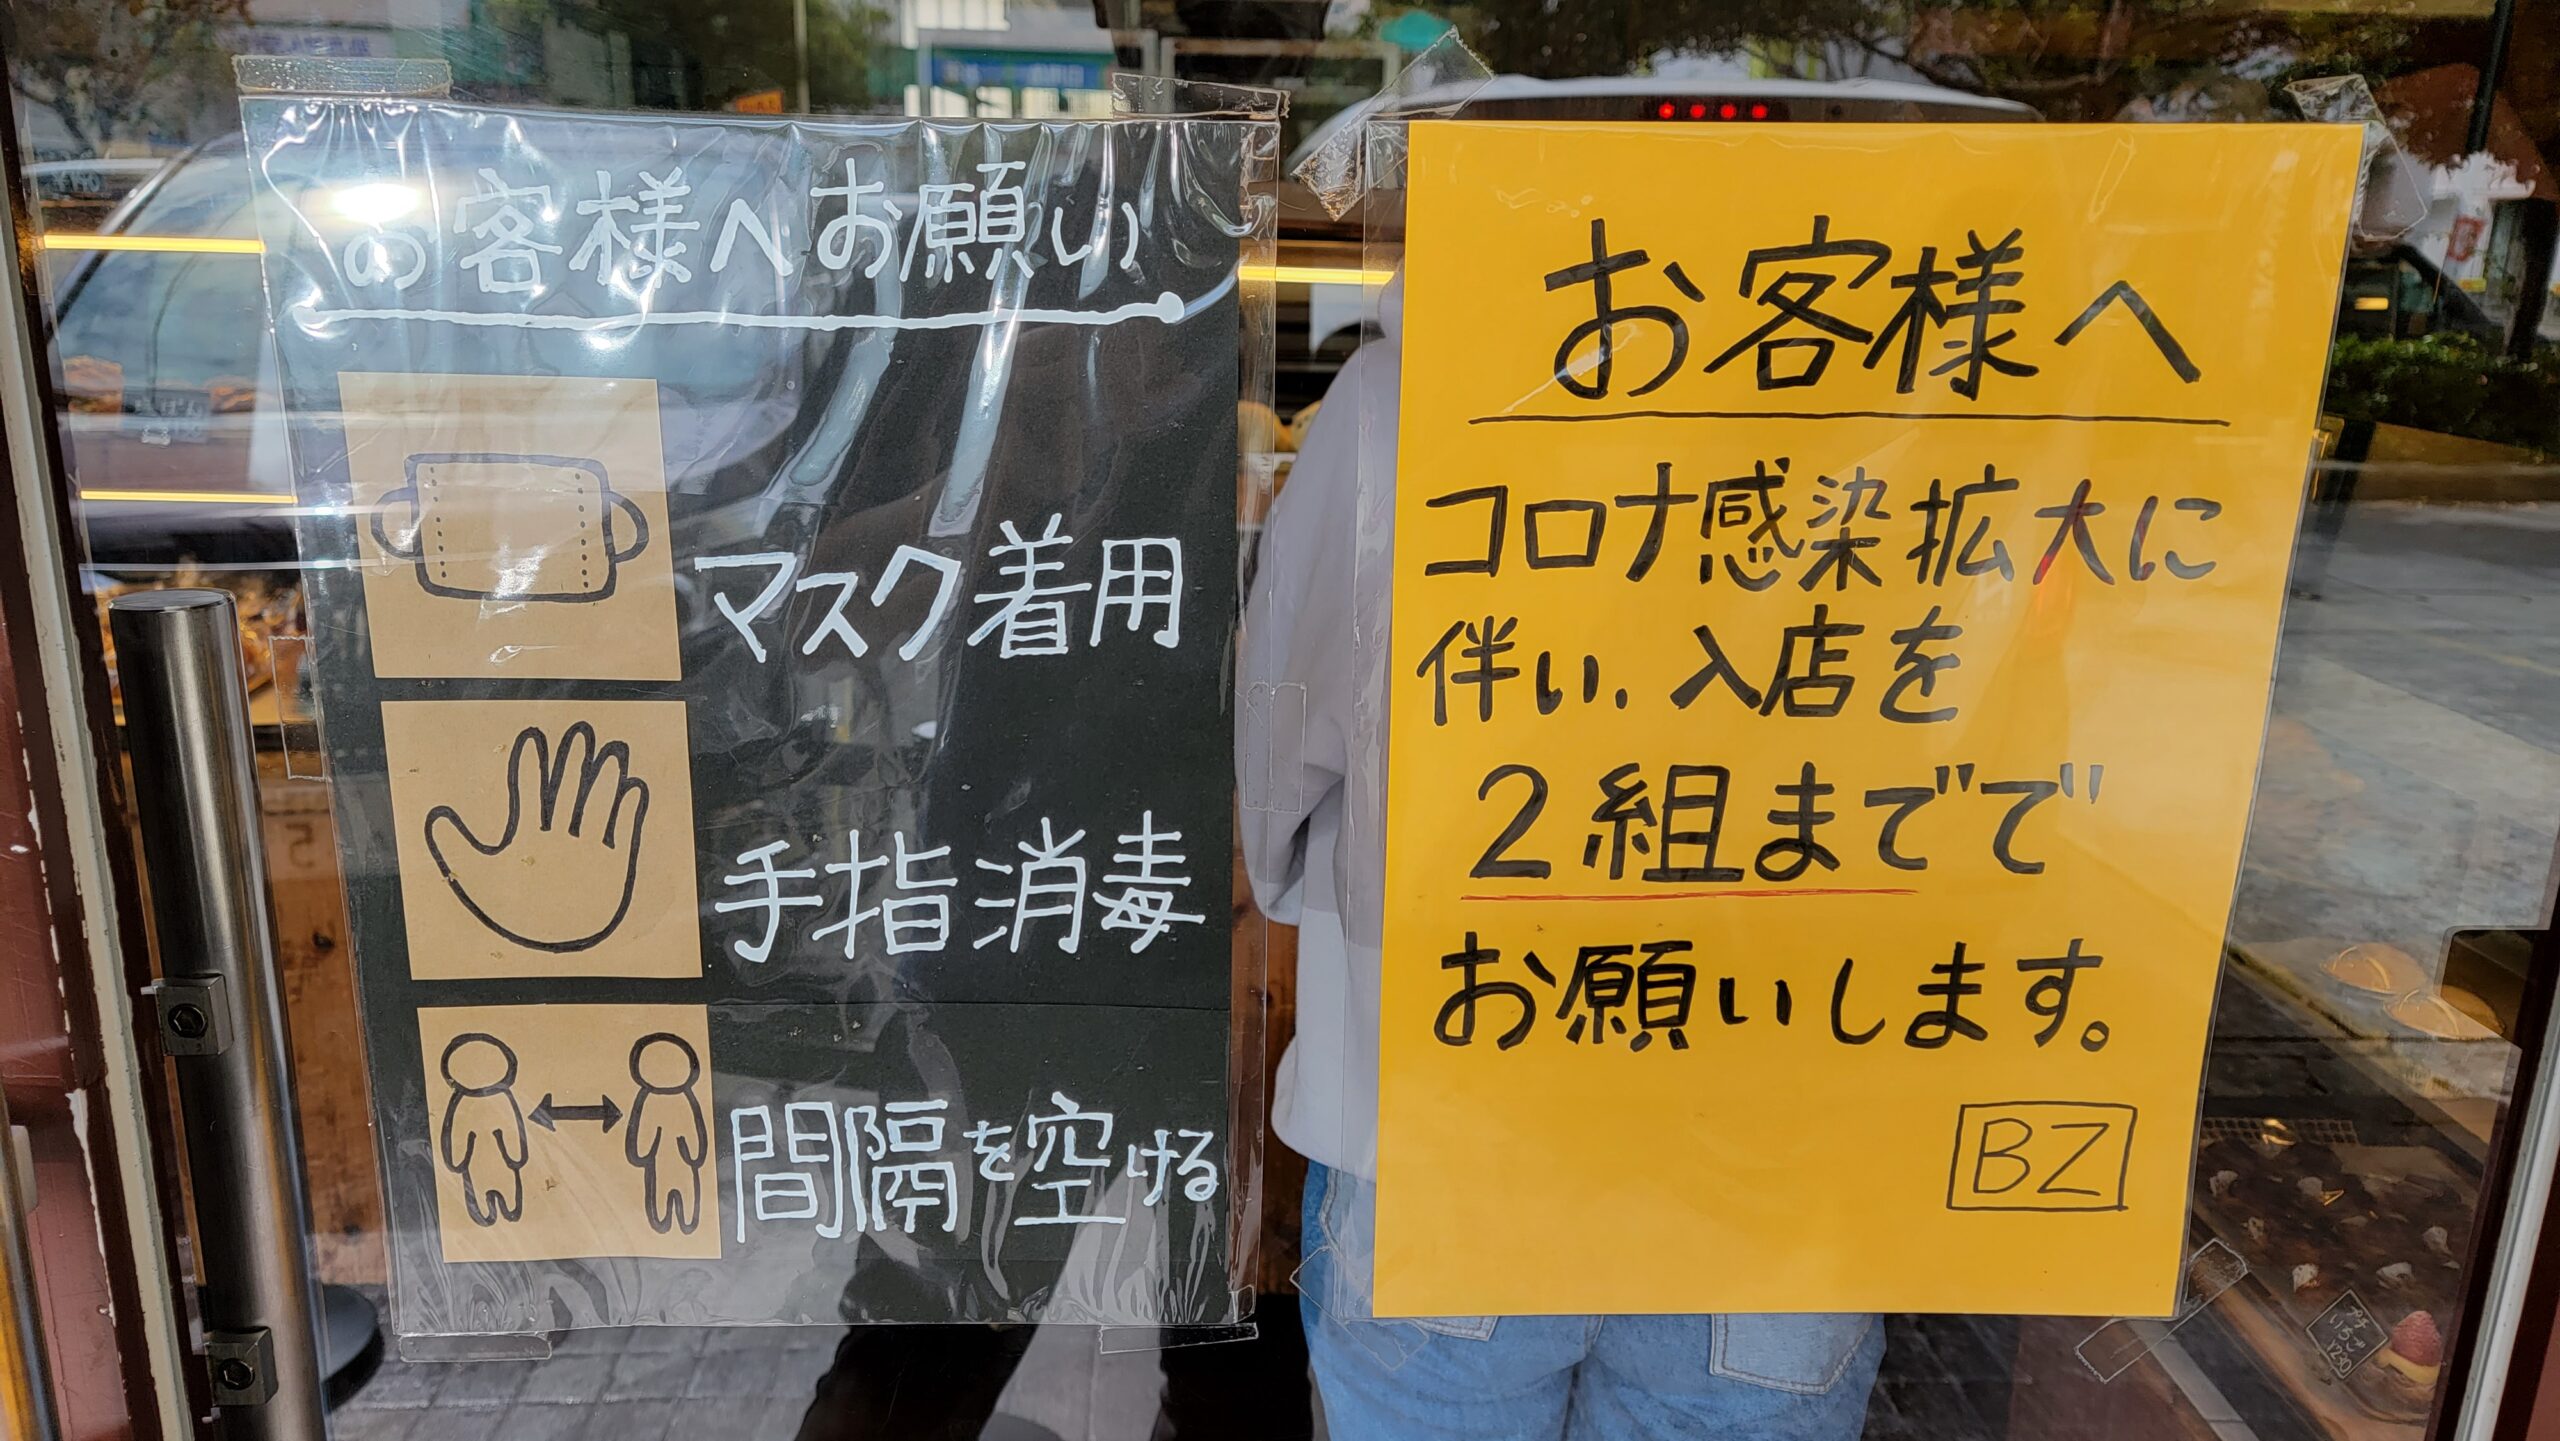 お客様へお願い
マスク着用
手指消毒
間隔を空ける
お客様へ
コロナ感染拡大に
伴い、入店を
2組までで
お願いします。
BZ
プチ
いちご